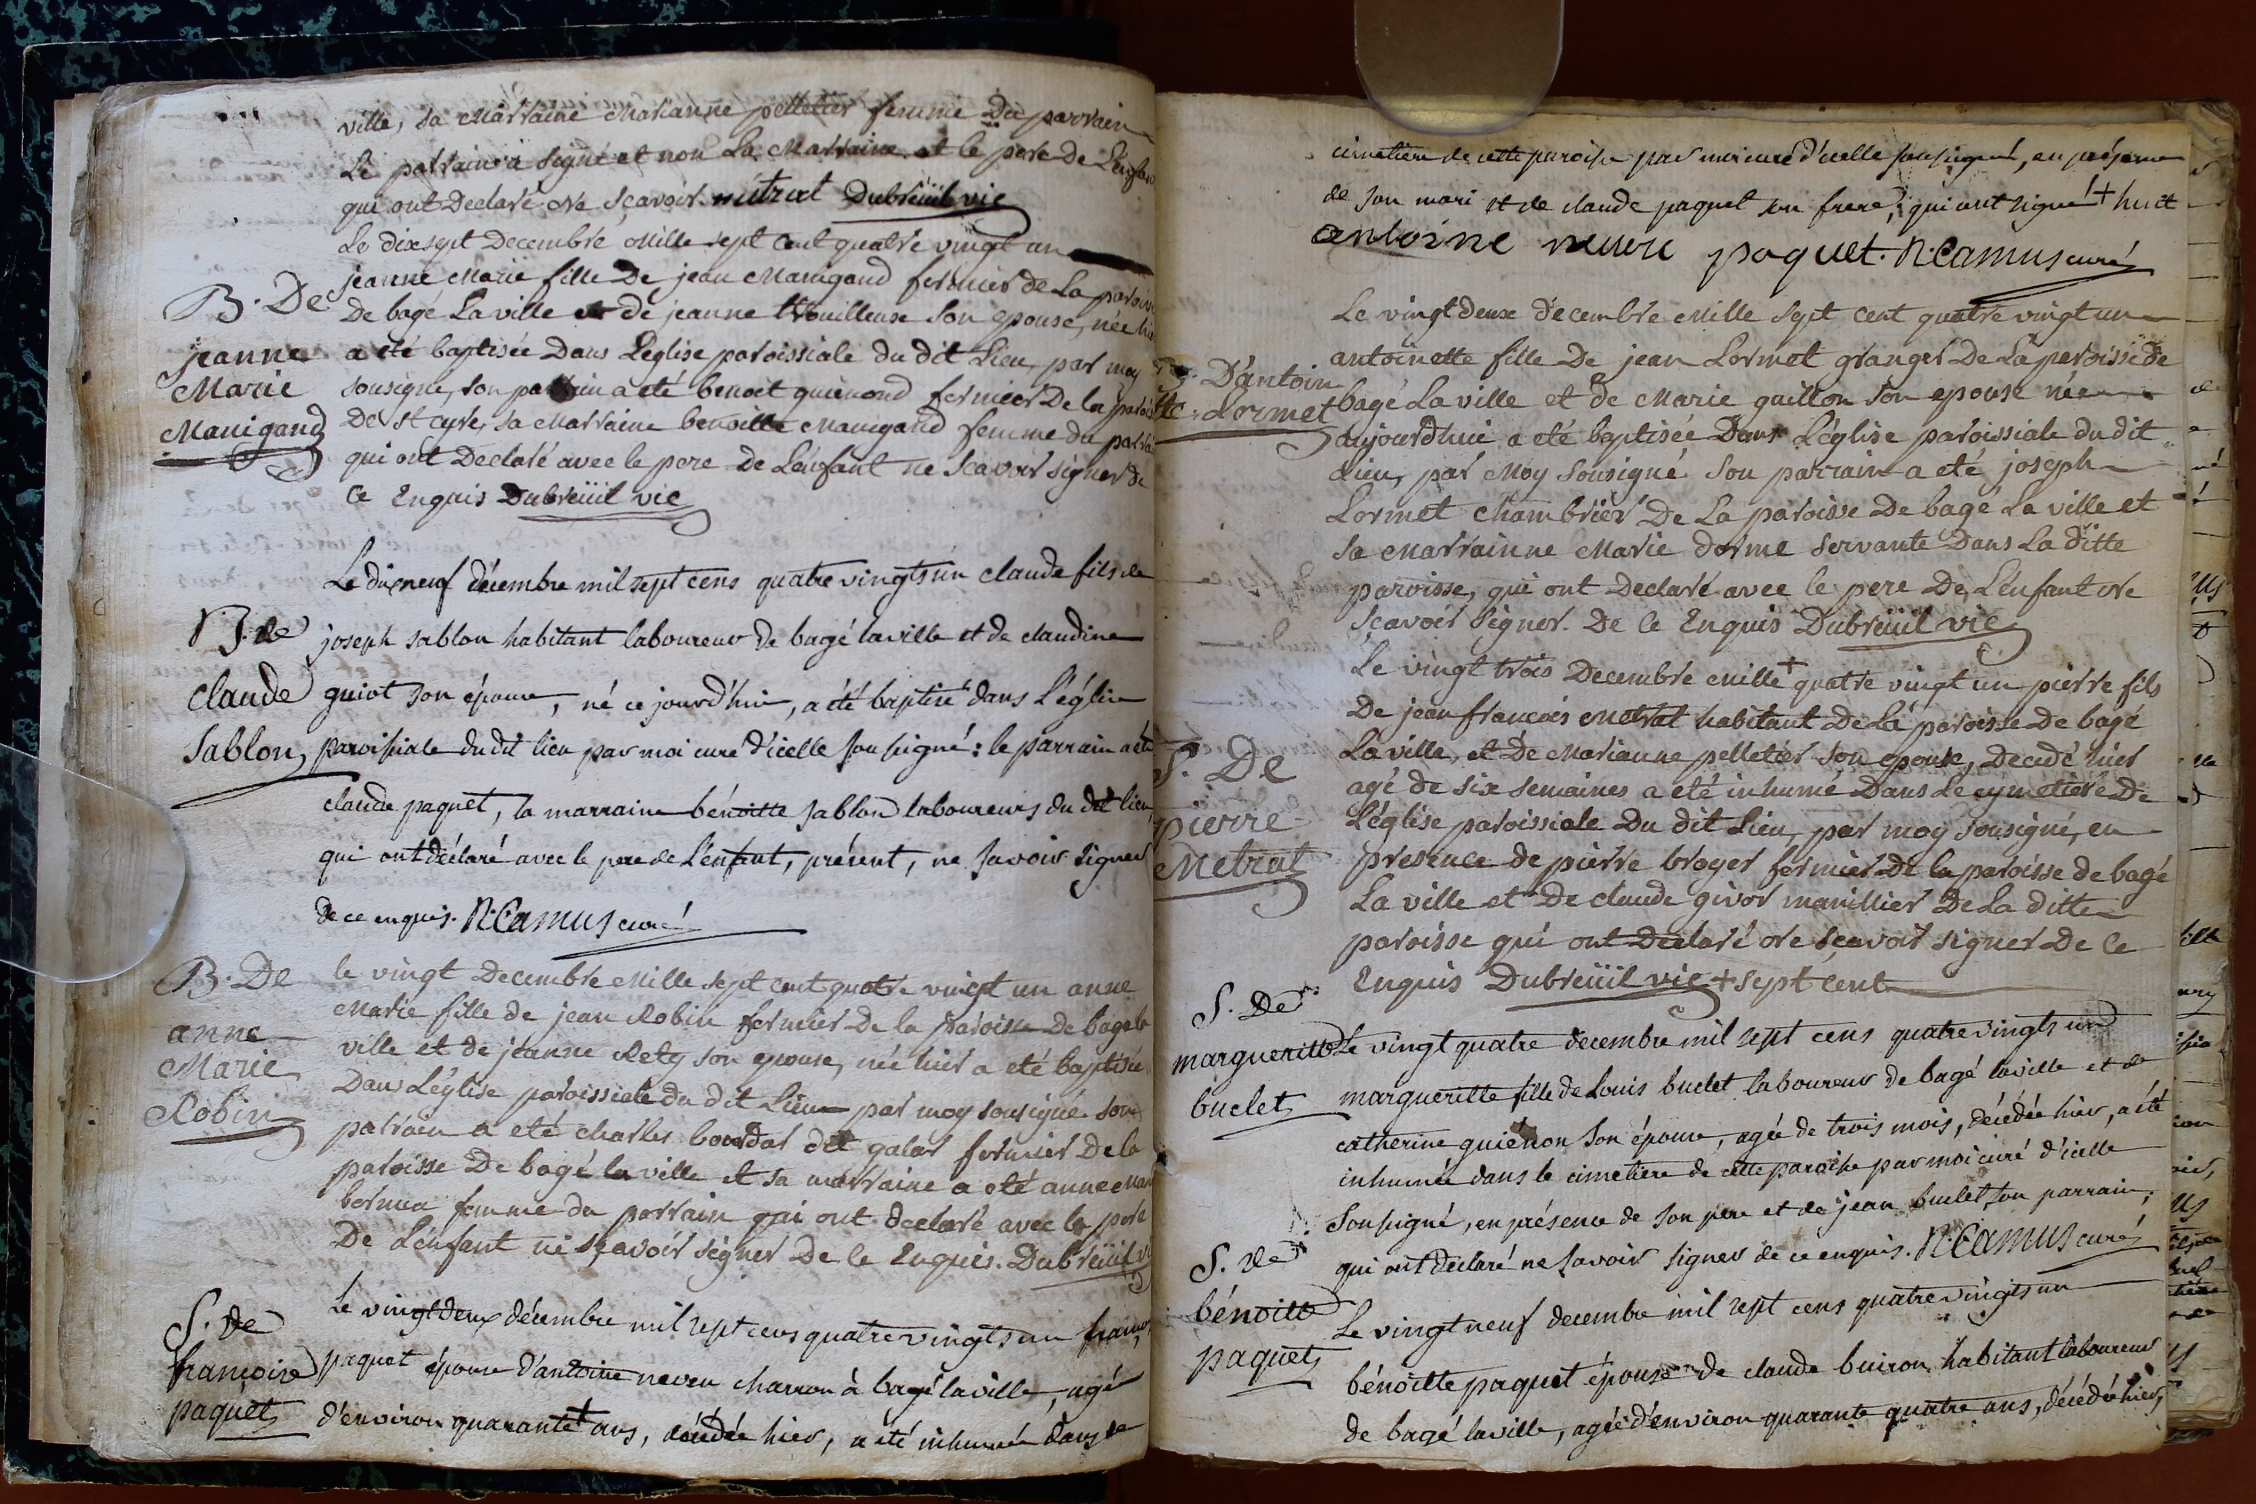 ville, sa Marraine Marianne pelletier femme Du parrain
Le parrain a signé et non La Marraine et le pere de L'enfan
qui ont Declaré Ne Sçavoir. métrat Dubreüil vic
Le dix sept Decembre Mille sept cent quatre vingt un
B. De
jeanne
Marie
Manigand
jeanne Marie fille De jean Manigand fermier de La paroisse
De bagé La ville et de jeanne trouilleuse Son epouse, née hier
a eté baptisée Dans L'eglise paroissiale du dit Lieu, par moy
sousigné, son parrain a eté benoit quienond fermier De la parois
De St cyre, sa Marraine benoitte Manigand femme du parrain
qui ont Declaré avec le pere de L'enfant ne Scavoir signer de
Ce Enquis Dubreüil vic
B. de
claude
Sablon
Le dix neuf décembre mil sept cens quatre vingts un claude fils de
joseph sablon habitant laboureur de bagé laville et de claudine
guiot son épouse, né ce jourd'hui, a été baptisé dans L'églize
paroissiale dudit lieu par moi curé d'icelle soussigné : le parrain a été
claude paquet, la marraine bénoitte sablon laboureurs du dit lieu,
qui ont déclaré avec le pere de L'enfant, présent, ne savoir signer
de ce enquis. N. Camus curé
B. De
anne
Marie
Robin
le vingt Decembre Mille sept cent quatre vingt un anne
Marie fille de jean Robin fermier De la paroisse De bagé la
ville et de jeanne Rety son epouse, née hier a eté baptisée
Dans L'église paroissiale du dit Lieu par moy sousigné son
parrain a eté charles bourdar dit galar fermier De la
paroisse De bagé la ville et sa marraine a eté anne Mar
femme du parrain qui ont declaré avec le pere
De L'enfant ne sçavoir signer De Ce Enquis. Dubreüil vi
S. de
françoise
paquet
Le vingtdeux décembre mil sept cens quatre vingts un franço
paquet épouse d'antoine neveu charron à bagé laville, agée
d'environ quarante + ans, décédée hier, a été inhumée dans le
cimetiere de cette paroisse par moi curé d'icelle soussigné, en présence
de son mari et de claude paquet son frere, qui ont signé ! + huit
antoine neveu paquet. N. Camus curé
B. D'antoin
tte Lormet
Le vingt deux décembre Mille Sept cent quatre vingt un
antoinette fille De jean Lormet granger De La paroisse de
bagé La ville et de Marie guillon Son epouse née
aujourdhui a eté baptisée Dans L'église paroissiale du dit
Lieu, par Moy Sousigné Son parrain a eté joseph
Lormet chambrier De La paroisse De bagé La ville et
Sa Marrainne Marie dorme Servante Dans La ditte
paroisse, qui ont Declaré avec le pere De L'enfant ne
Sçavoir Signer. De Ce Enquis Dubreüil vic
S. De
pierre
Metrat
Le vingt trois Decembre Mille + quatre vingt un pierre fils
De jean francois Metrat habitant De La paroisse De bagé
La ville, et de Marianne pelletier son epouse, Decedé hier
agé de six semaines a eté inhumé Dans Le cymetiere De
L'église paroissiale Du dit Lieu, par moy sousigné, en
presence de pierre broyer fermier De la paroisse de bagé
La ville et De claude givor manillier De La ditte
paroisse qui ont Declaré ne sçavoir signer De Ce
Enquis Dubreüil vic + sept cent
S. De
margueritte
buclet
Le vingt quatre decembre mil sept cens quatre vingts un
margueritte fille de Louis buclet laboureur de bagé laville et de
catherine guiénon Son épouse, agée de trois mois, décédée hier, a été
inhumée dans le cimetiere de cette paroisse par moi curé d'icelle
Soussigné, en présence de son pere et de jean buclet, son parrain,
qui ont déclaré ne savoir signer de ce enquis. N. Camus curé
S. de
bénoitte
paquet
Le vingt neuf decembre mil sept cens quatre vingts un
bénoitte paquet épouse de claude buiron habitant laboureur
de bagé laville, agée d'environ quarante quatre ans, décédée hier,